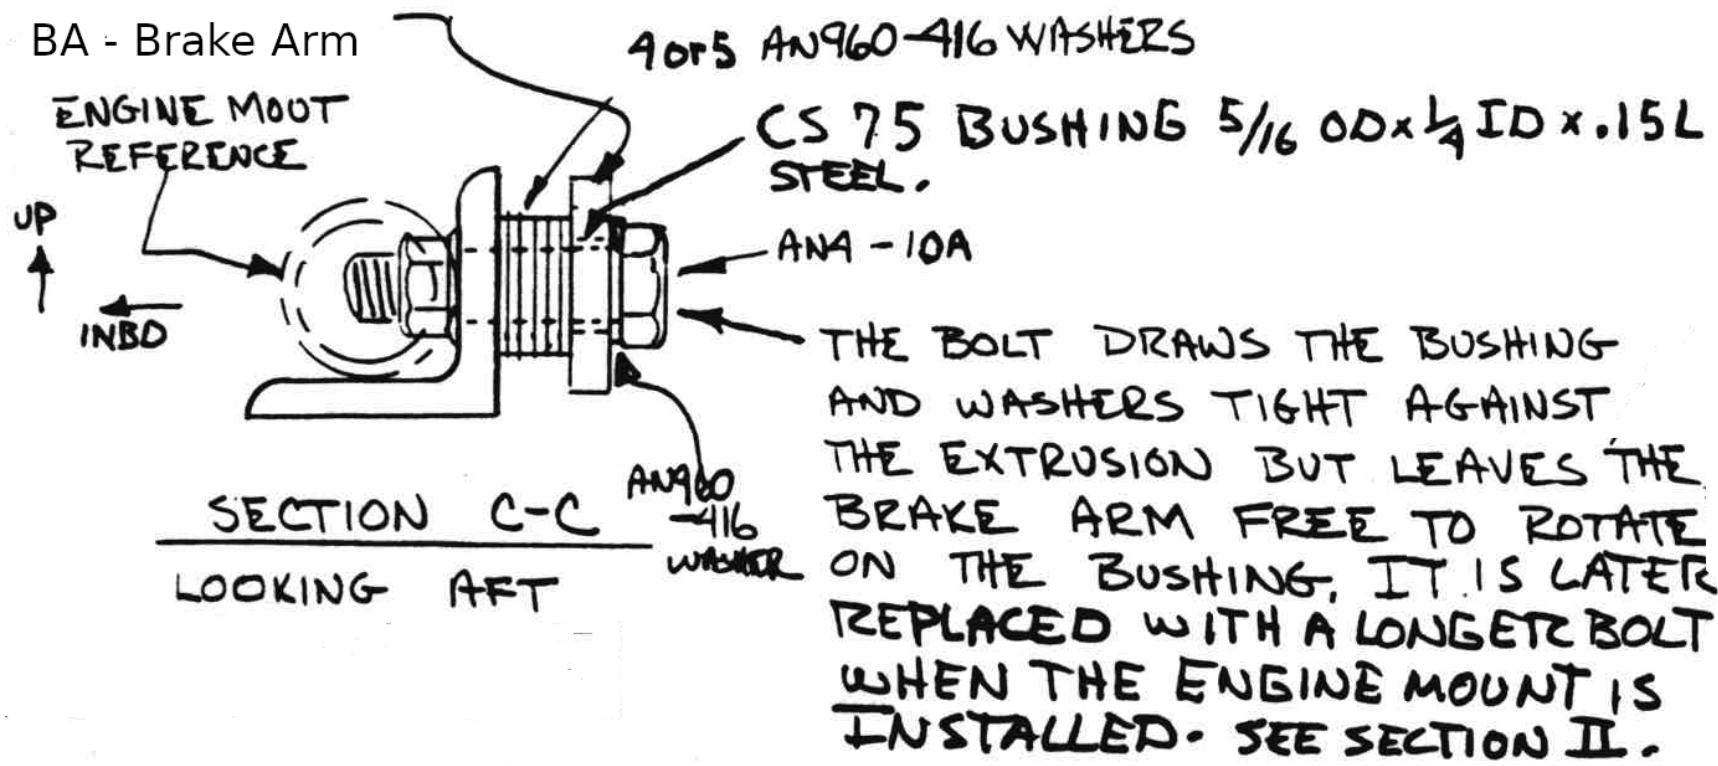 BA - Brake Arm
4 or 5 AN960-416 WASHERS
ENGINE MOUT
REFERENCE
CS 75 BUSHING 5/16 OD x 1/4 ID x .15L
STEEL.
UP
INBD
AN4 - 10A
THE BOLT DRAWS THE BUSHING
AND WASHERS TIGHT AGAINST
THE EXTRUSION BUT LEAVES THE
BRAKE ARM FREE TO ROTATE
ON THE BUSHING. IT IS LATER
REPLACED WITH A LONGER BOLT
WHEN THE ENGINE MOUNT IS
INSTALLED. SEE SECTION II.
AN960
-416
WASHER
SECTION C-C
LOOKING AFT